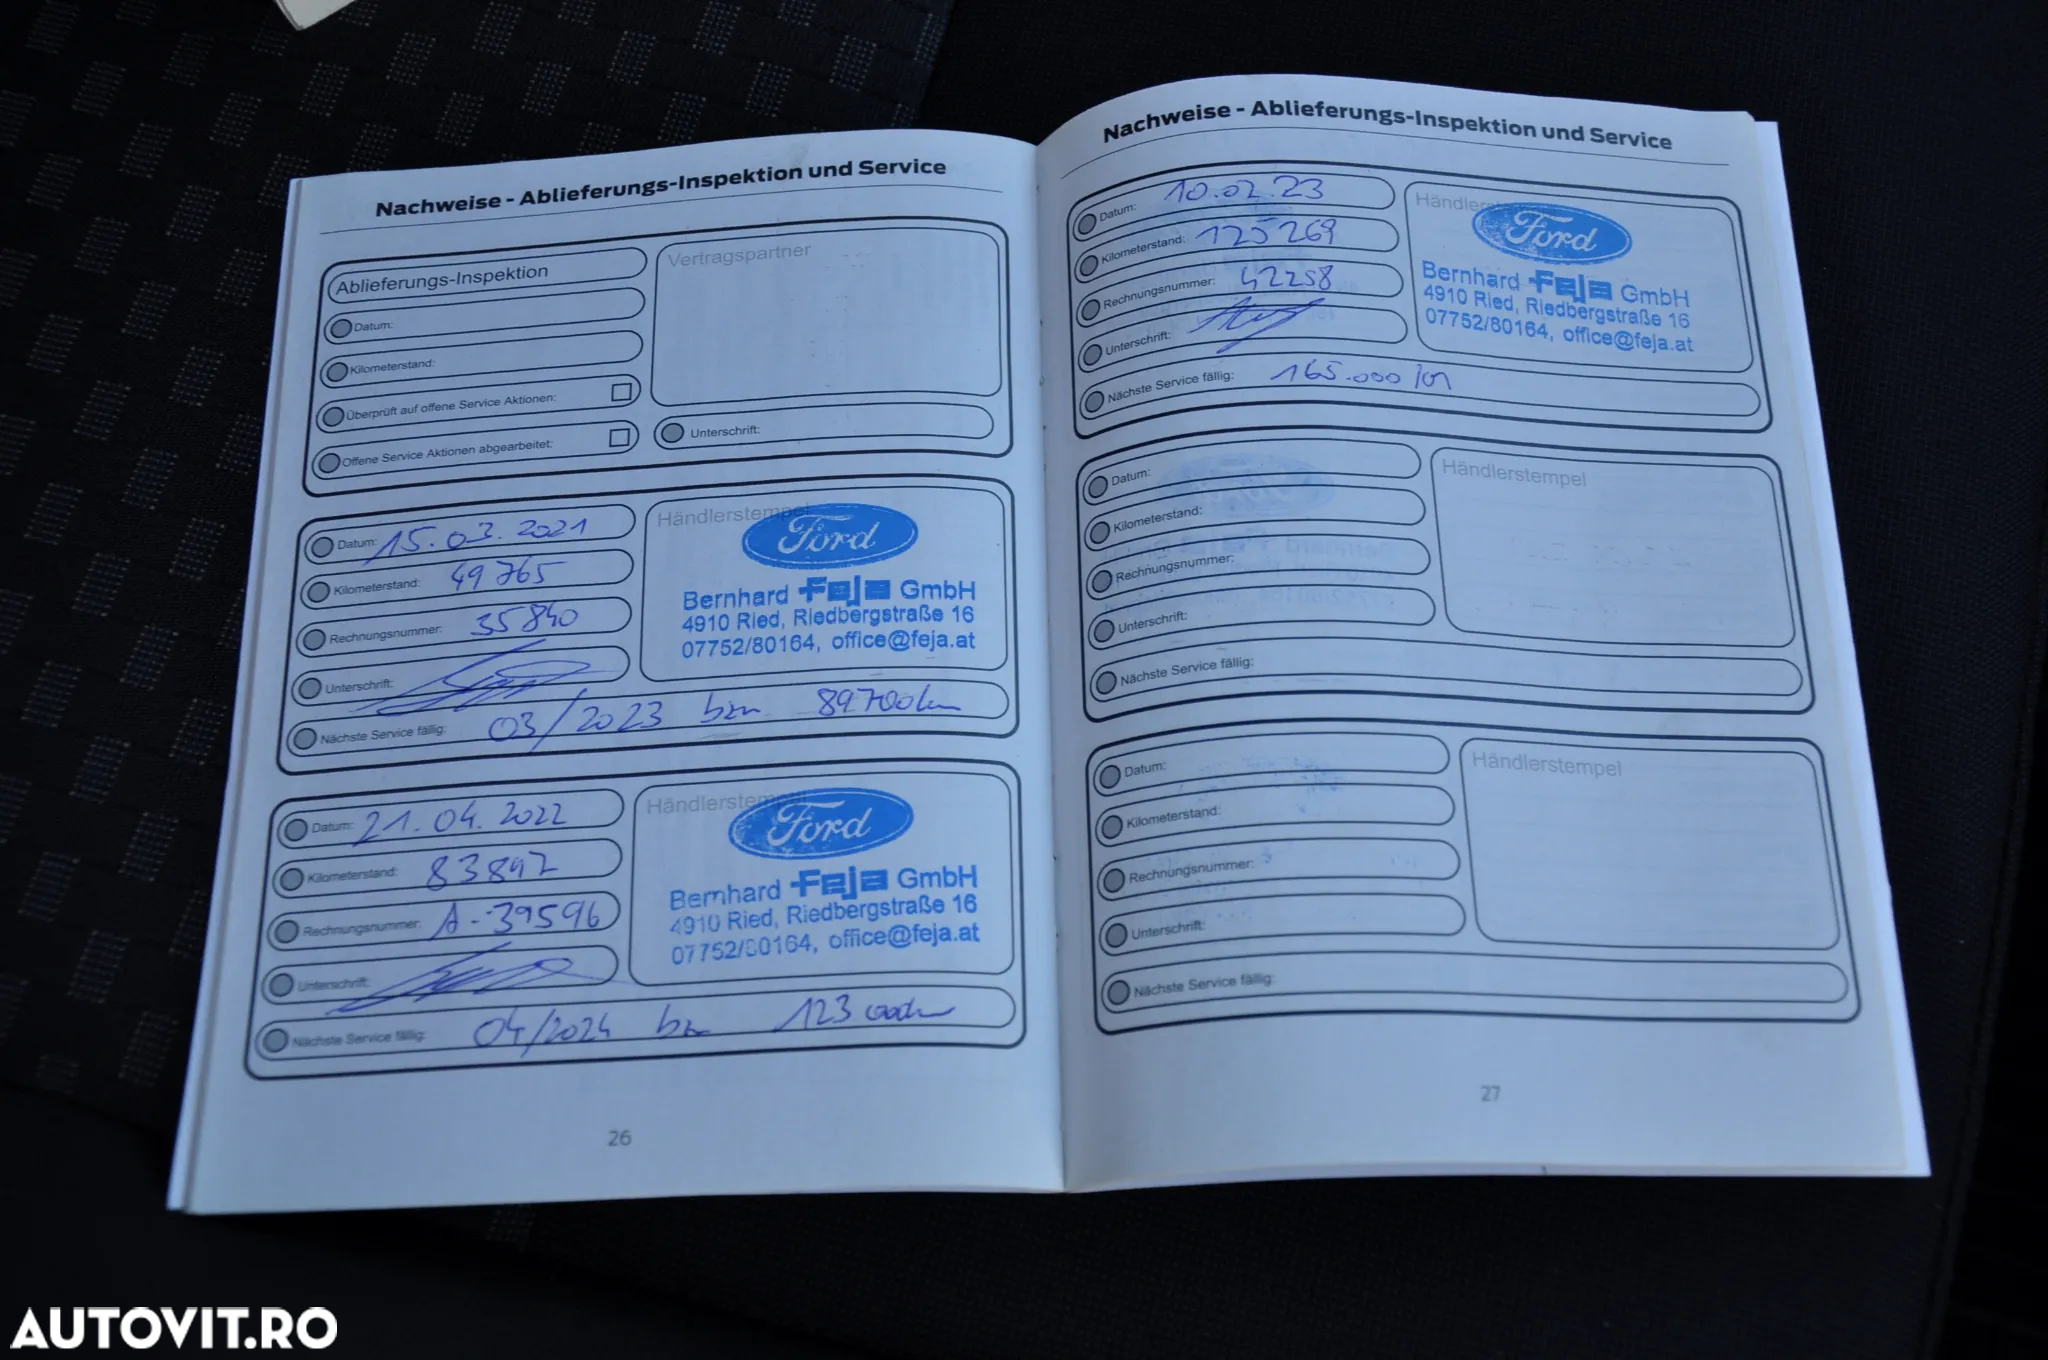 Nachweise - Ablieferungs-Inspektion und Service
Ablieferungs-Inspektion
Datum:
Kilometerstand:
Überprüft auf offene Service Aktionen:
Offene Service Aktionen abgearbeitet:
Vertragspartner
Unterschrift:
Datum: 15.03.2021
Kilometerstand: 49765
Rechnungsnummer: 35840
Unterschrift:
Nächste Service fällig: 03/2023 bzw 89700km
Händlerstempel
Ford
Bernhard Feja GmbH
4910 Ried, Riedbergstraße 16
07752/80164, office@feja.at
Datum: 21.04.2022
Kilometerstand: 83897
Rechnungsnummer: A-39596
Unterschrift:
Nächste Service fällig: 04/2024 bzw 123000km
Händlerstempel
Ford
Bernhard Feja GmbH
4910 Ried, Riedbergstraße 16
07752/80164, office@feja.at
26
Nachweise - Ablieferungs-Inspektion und Service
Datum: 10.02.23
Kilometerstand: 125269
Rechnungsnummer: 42258
Unterschrift:
Nächste Service fällig: 165.000 km
Händlerstempel
Ford
Bernhard Feja GmbH
4910 Ried, Riedbergstraße 16
07752/80164, office@feja.at
Datum:
Kilometerstand:
Rechnungsnummer:
Unterschrift:
Nächste Service fällig:
Händlerstempel
Datum:
Kilometerstand:
Rechnungsnummer:
Unterschrift:
Nächste Service fällig:
Händlerstempel
27
AUTOVIT.RO